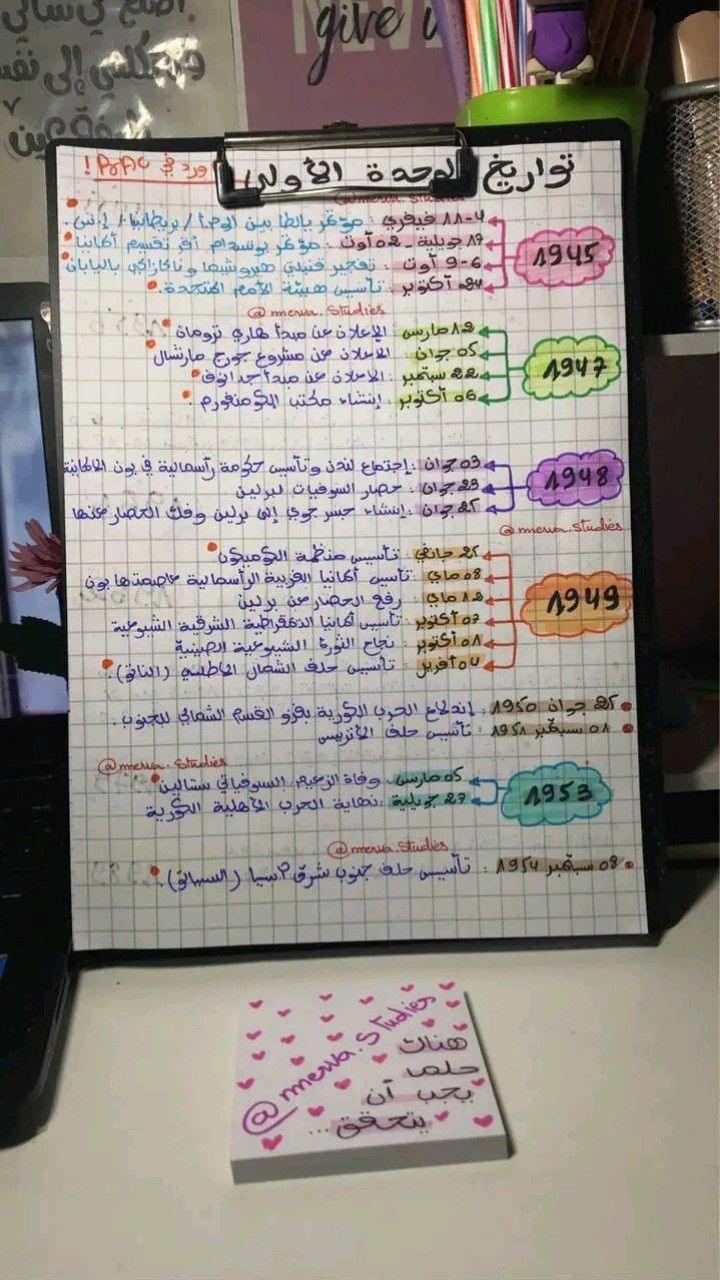 give
تواريخ الوحدة الأولى
ورد في BAC !
@merva.Studies
1945
4-11 فيفري : مؤتمر يالطا بين الو.م.أ / بريطانيا / إ.س.
17 جويلية - 02 أوت : مؤتمر بوتسدام أقر تقسيم ألمانيا
6-9 أوت : تفجير قنبلتي هيروشيما وناكازاكي باليابان
24 أكتوبر : تأسيس هيئة الأمم المتحدة.
@merva.Studies
1947
12 مارس : الإعلان عن مبدأ هاري ترومان
05 جوان : الإعلان عن مشروع جورج مارشال
22 سبتمبر : الإعلان عن مبدأ جدانوف
06 أكتوبر : إنشاء مكتب الكومنفورم .
1948
03 جوان : إجتماع لندن وتأسيس حكومة رأسمالية في بون الألمانية
23 جوان : حصار السوفيات لبرلين
25 جوان : إنشاء جسر جوي إلى برلين وفك الحصار عنها
@merva.Studies
1949
25 جانفي : تأسيس منظمة الكوميكون
08 ماي : تأسيس ألمانيا الغربية الرأسمالية عاصمتها بون
12 ماي : رفع الحصار عن برلين
07 أكتوبر : تأسيس ألمانيا الديمقراطية الشرقية الشيوعية
01 أكتوبر : نجاح الثورة الشيوعية الصينية
04 أفريل : تأسيس حلف الشمال الأطلسي (الناتو).
25 جوان 1950 : إندلاع الحرب الكورية بغزو القسم الشمالي للجنوب.
01 سبتمبر 1951 : تأسيس حلف الأنزيس
@merva.Studies
1953
05 مارس : وفاة الزعيم السوفياتي ستالين
27 جويلية : نهاية الحرب الأهلية الكورية
@merva.Studies
08 سبتمبر 1954 : تأسيس حلف جنوب شرق آسيا (السياتو).
@merva.Studies
هناك
حلما
يجب أن
يتحقق...